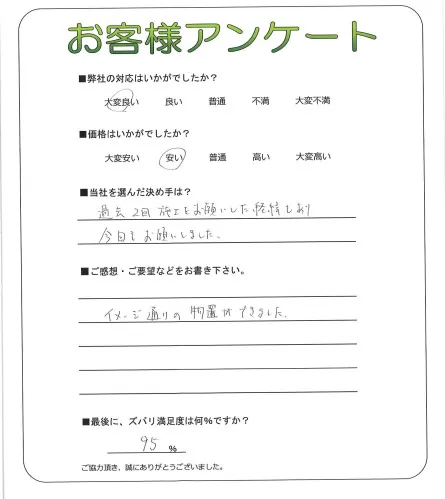 お客様アンケート
■弊社の対応はいかがでしたか?
大変良い 良い 普通 不満 大変不満
■価格はいかがでしたか?
大変安い 安い 普通 高い 大変高い
■当社を選んだ決め手は?
過去2回施工をお願いした経緯もあり
今回もお願いしました。
■ご感想・ご要望などをお書き下さい。
イメージ通りの物置ができました。
■最後に、ズバリ満足度は何%ですか?
95 %
ご協力頂き、誠にありがとうございました。